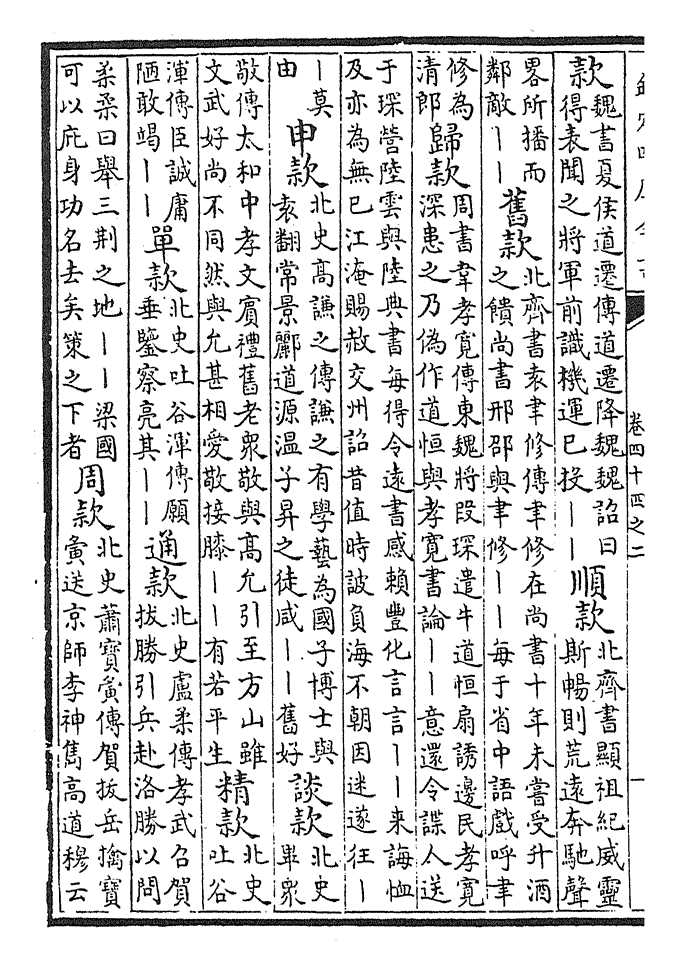 欽定四庫全書
卷四十四之二
一
款魏書夏侯道遷傳道遷降魏魏詔曰得表聞之將軍前識機運已投｜｜順款北齊書顯祖紀威靈斯暢則荒遠奔馳聲
畧所播而鄰敵｜｜舊款北齊書袁聿修傳聿修在尚書十年未嘗受升酒之饋尚書邢邵與聿修｜｜每于省中語戲呼聿
修為清郎歸款周書韋孝寛傳東魏將段琛遣牛道恒扇誘邊民孝寛深患之乃偽作道恒與孝寛書論｜｜意還令諜人送
于琛營陸雲與陸典書每得令遠書感賴豐化言言｜｜來誨恤及亦為無已江淹賜赦交州詔昔值時詖負海不朝因迷遂往｜
｜莫由申款北史高謙之傳謙之有學藝為國子博士與袁翻常景酈道源温子昇之徒咸｜｜舊好談款北史畢衆
敬傳太和中孝文賓禮舊老衆敬與高允引至方山雖文武好尚不同然與允甚相愛敬接膝｜｜有若平生精款北史吐谷
渾傳臣誠庸陋敢竭｜｜單款北史吐谷渾傳願垂鑒察亮其｜｜通款北史盧柔傳孝武召賀拔勝引兵赴洛勝以問
柔柔曰舉三荆之地｜｜梁國可以庇身功名去矣策之下者周款北史蕭寶夤傳賀拔岳擒寶夤送京師李神雋高道穆云